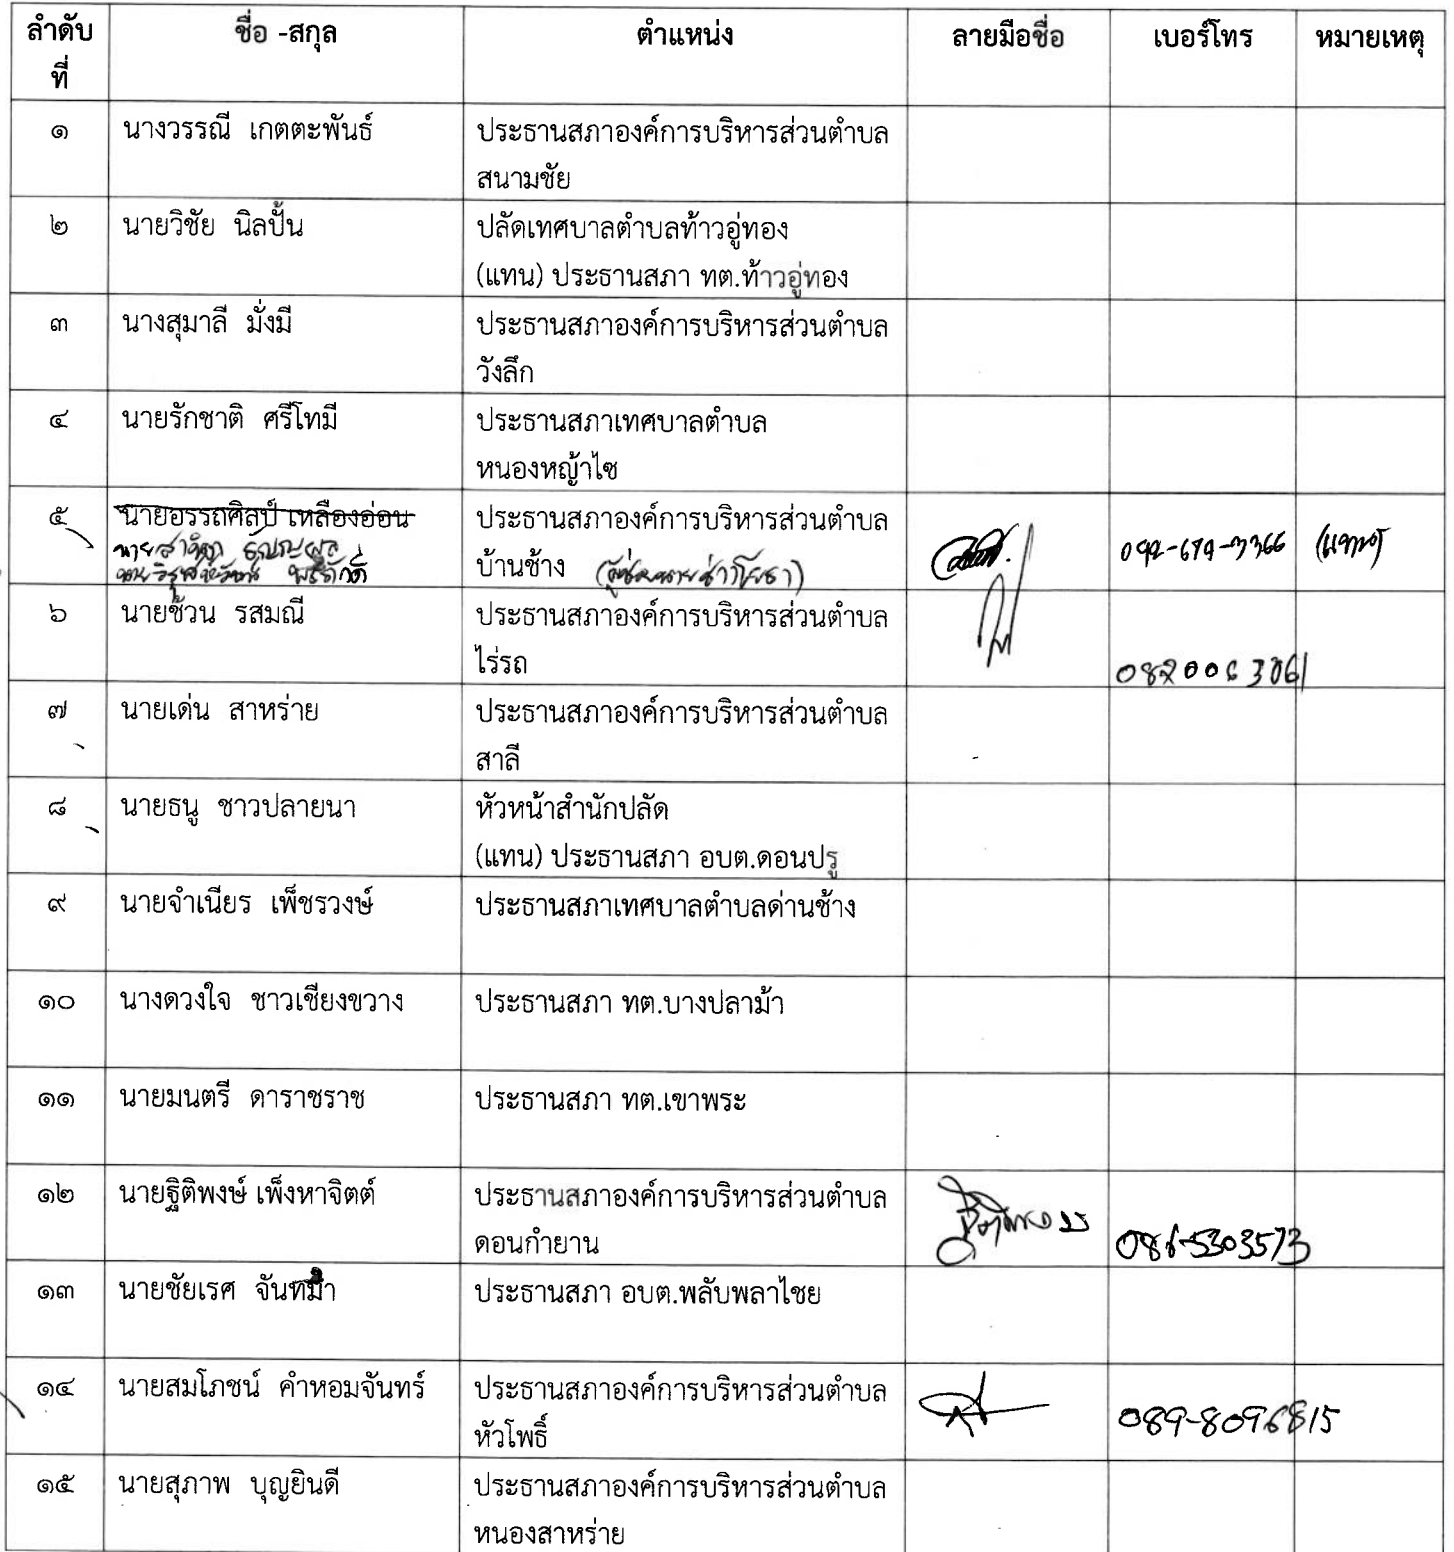 ลำดับที่ ชื่อ -สกุล ตำแหน่ง ลายมือชื่อ เบอร์โทร หมายเหตุ
๑ นางวรรณี เกตตะพันธ์ ประธานสภาองค์การบริหารส่วนตำบล
สนามชัย
๒ นายวิชัย นิลปั้น ปลัดเทศบาลตำบลท้าวอู่ทอง
(แทน) ประธานสภา ทต.ท้าวอู่ทอง
๓ นางสุมาลี มั่งมี ประธานสภาองค์การบริหารส่วนตำบล
วังลึก
๔ นายรักชาติ ศรีโทมี ประธานสภาเทศบาลตำบล
หนองหญ้าไซ
๕ นายอรรถศิลป์ เหลืองอ่อน ประธานสภาองค์การบริหารส่วนตำบล
บ้านช้าง (แทน)
๖ นายช้วน รสมณี ประธานสภาองค์การบริหารส่วนตำบล
ไร่รถ
๗ นายเด่น สาหร่าย ประธานสภาองค์การบริหารส่วนตำบล
สาลี
๘ นายธนู ชาวปลายนา หัวหน้าสำนักปลัด
(แทน) ประธานสภา อบต.ดอนปรู
๙ นายจำเนียร เพ็ชรวงษ์ ประธานสภาเทศบาลตำบลด่านช้าง
๑๐ นางดวงใจ ชาวเชียงขวาง ประธานสภา ทต.บางปลาม้า
๑๑ นายมนตรี ดาราชราช ประธานสภา ทต.เขาพระ
๑๒ นายฐิติพงษ์ เพ็งหาจิตต์ ประธานสภาองค์การบริหารส่วนตำบล
ดอนกำยาน 086-5303573
๑๓ นายชัยเรศ ประธานสภา อบต.พลับพลาไชย
๑๔ นายสมโภชน์ คำหอมจันทร์ ประธานสภาองค์การบริหารส่วนตำบล
หัวโพธิ์ 089-8096815
๑๕ นายสุภาพ บุญยินดี ประธานสภาองค์การบริหารส่วนตำบล
หนองสาหร่าย